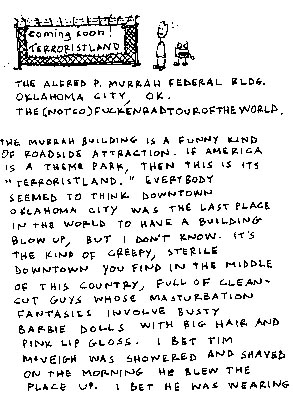 coming soon!
TERRORISTLAND
THE ALFRED P. MURRAH FEDERAL BLDG.
OKLAHOMA CITY, OK.
THE(NOTSO)FUCKENRADTOUROFTHEWORLD.
THE MURRAH BUILDING IS A FUNNY KIND
OF ROADSIDE ATTRACTION. IF AMERICA
IS A THEME PARK, THEN THIS IS ITS
"TERRORISTLAND." EVERYBODY
SEEMED TO THINK DOWNTOWN
OKLAHOMA CITY WAS THE LAST PLACE
IN THE WORLD TO HAVE A BUILDING
BLOW UP, BUT I DON'T KNOW. IT'S
THE KIND OF CREEPY, STERILE
DOWNTOWN YOU FIND IN THE MIDDLE
OF THIS COUNTRY, FULL OF CLEAN-
CUT GUYS WHOSE MASTURBATION
FANTASIES INVOLVE BUSTY
BARBIE DOLLS WITH BIG HAIR AND
PINK LIP GLOSS. I BET TIM
McVEIGH WAS SHOWERED AND SHAVED
ON THE MORNING HE BLEW THE
PLACE UP. I BET HE WAS WEARING